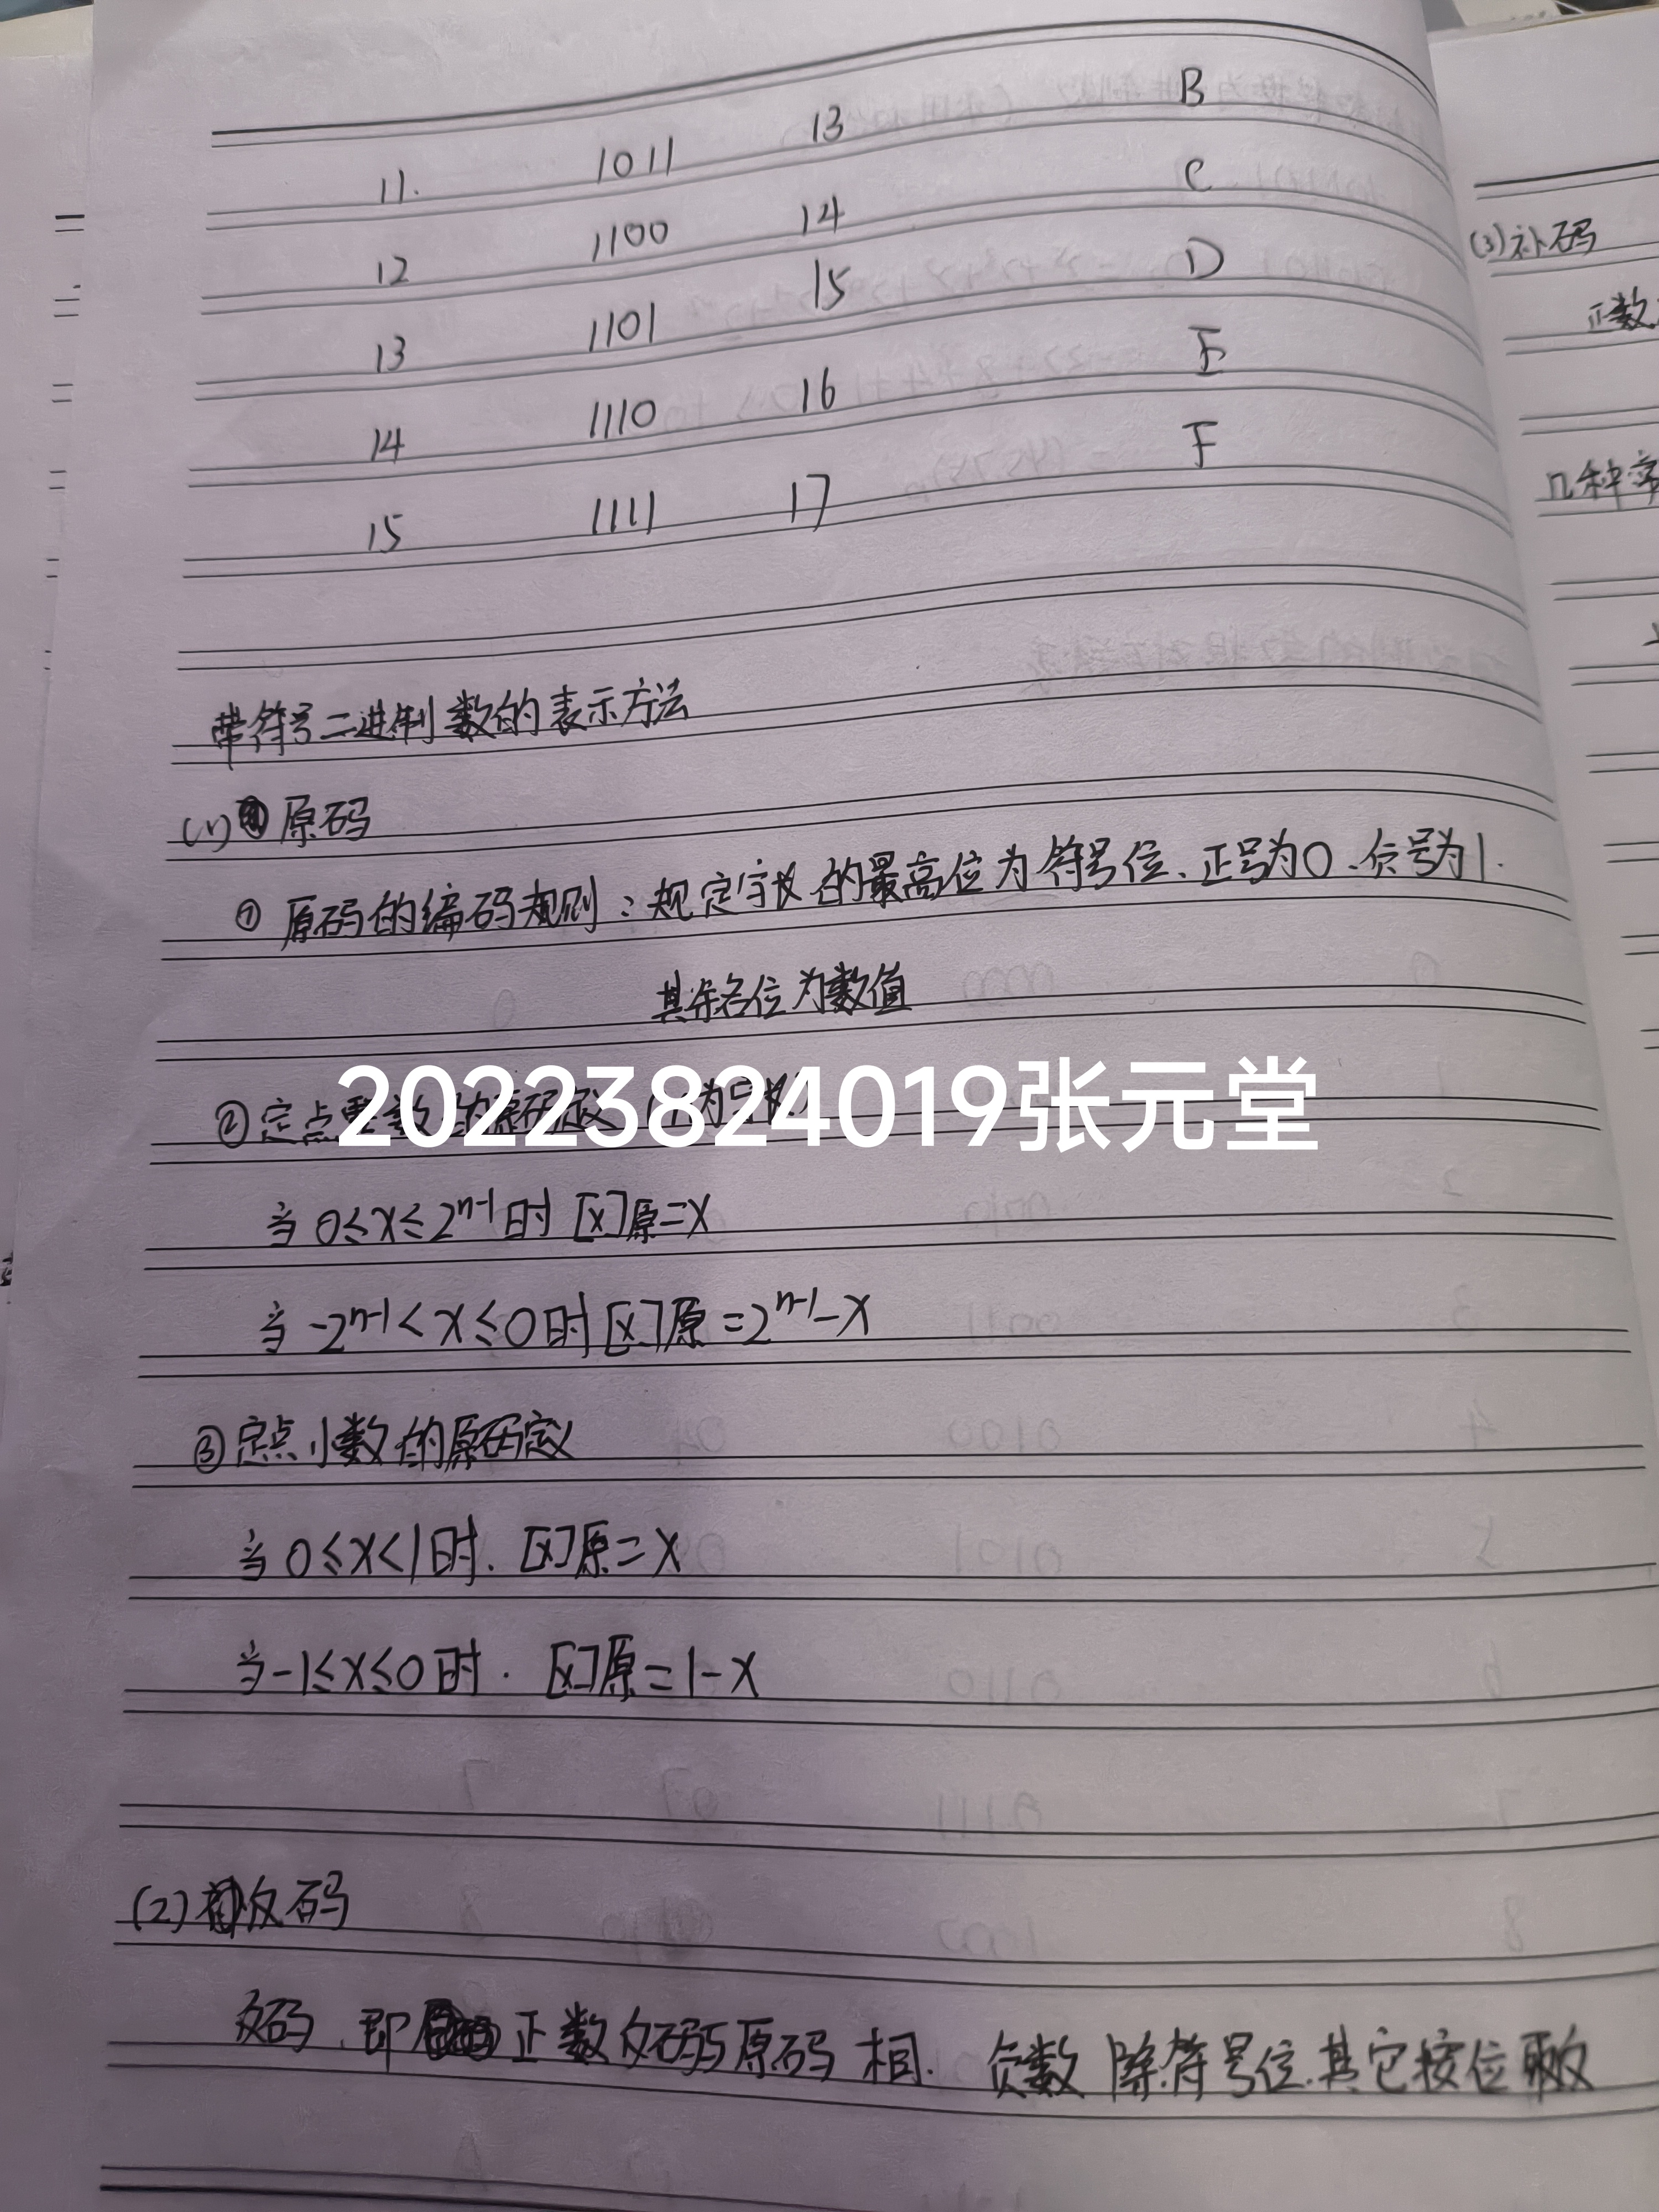 11. 1011 13 B
12 1100 14 C
13 1101 15 D
14 1110 16 E
15 1111 17 F
带符号二进制数的表示方法
(1) 原码
① 原码的编码规则:规定字长的最高位为符号位、正号为0、负号为1.
其余各位为数值
② 定点整数的原码定义 (n为字长)
20223824019张元堂
当 0≤x≤2ⁿ⁻¹时 [x]原=x
当 -2ⁿ⁻¹<x≤0时 [x]原=2ⁿ⁻¹-x
③定点小数的原码定义
当 0≤x<1时. [x]原=x
当-1≤x≤0时. [x]原=1-x
(2) 反码
反码、即 正数反码与原码相. 负数 除符号位.其它按位取反
(3)补码
正数
几种常